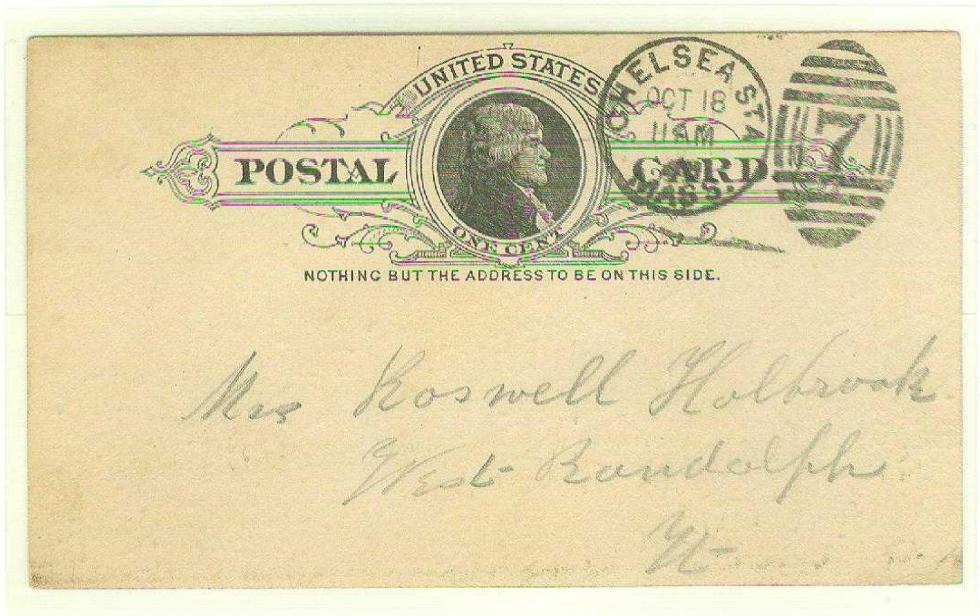 UNITED STATES
POSTAL CARD
ONE CENT
CHELSEA STA
OCT 18
11 AM
MASS.
7
NOTHING BUT THE ADDRESS TO BE ON THIS SIDE.
Mrs Roswell Holbrook
West Randolph
Vt